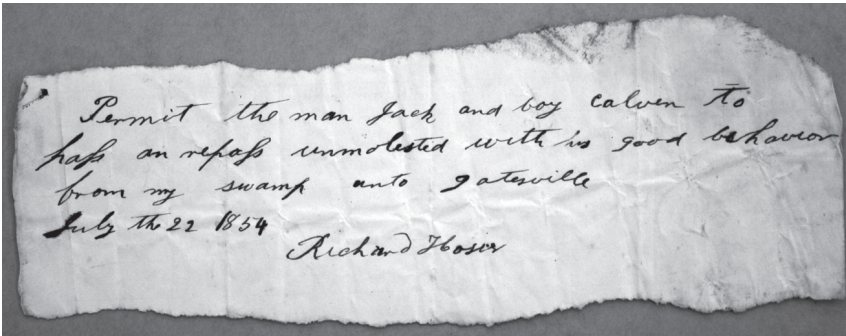 Permit the man Jack and boy Calven to
pass an repass unmolested with his good behavior
from my swamp unto gatesville
July the 22 1854
Richard Hoser